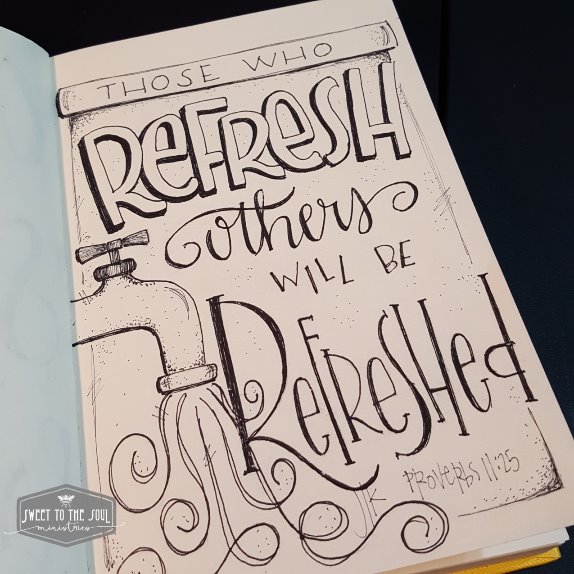 THOSE WHO
REFRESH
others
WILL BE
REFRESHed
PROVERBS 11:25
JK
SWEET TO THE SOUL
ministries